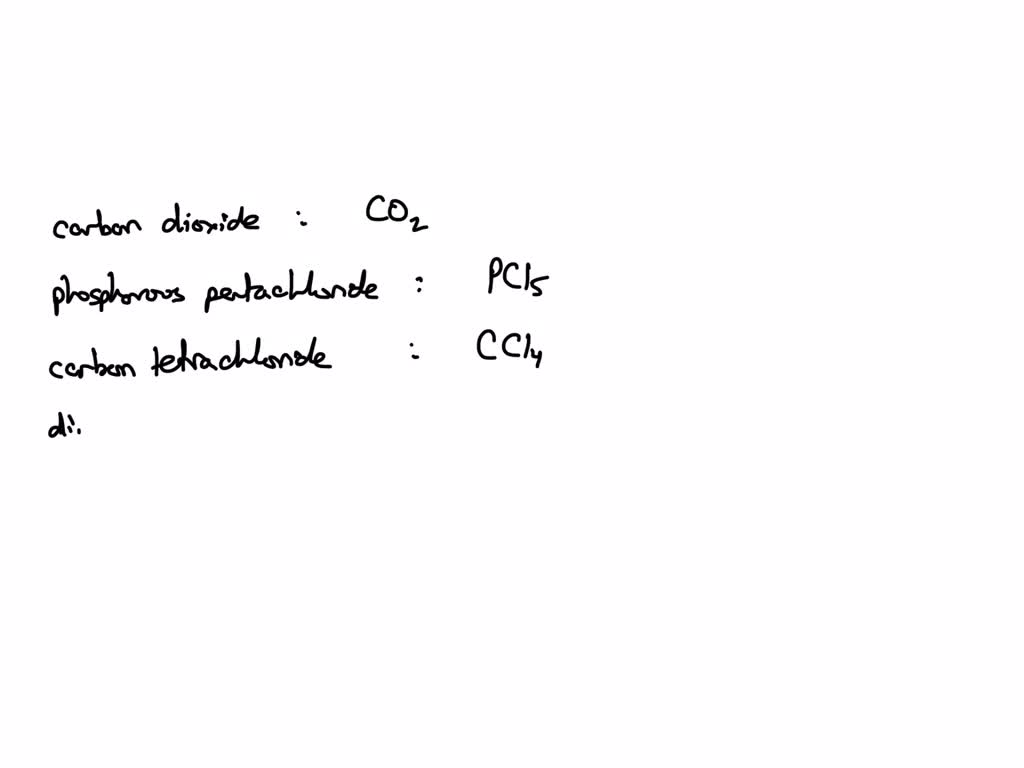 carbon dioxide : CO₂
phosphorous pentachloride : PCl₅
carbon tetrachloride : CCl₄
di